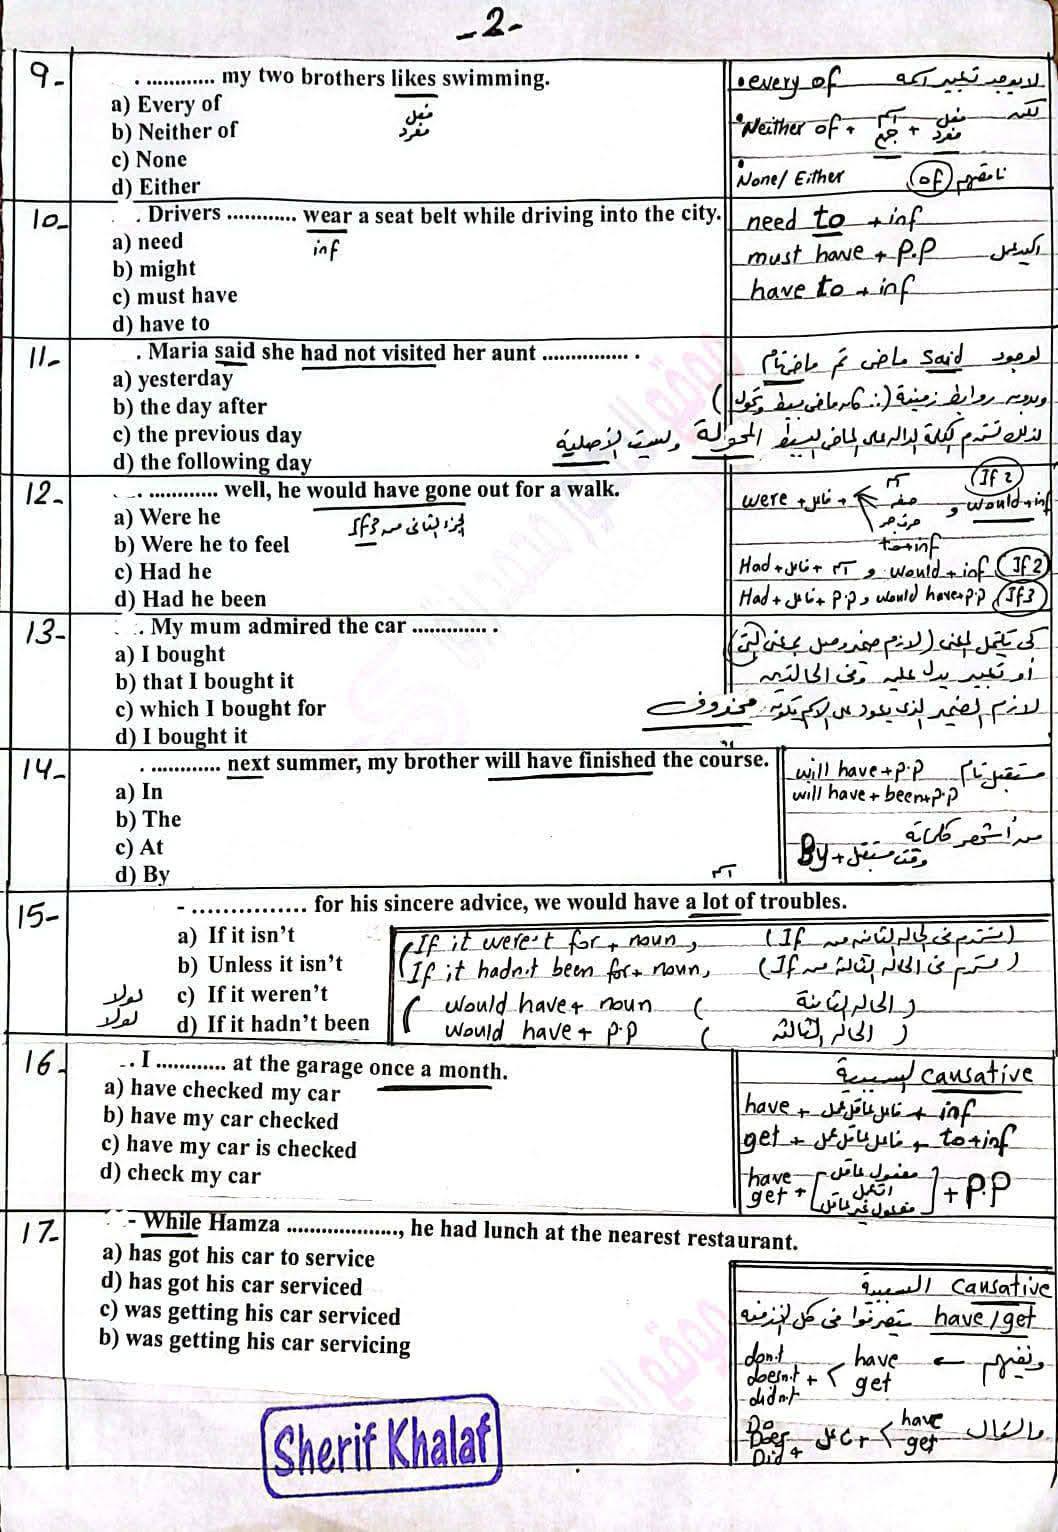 -2-
9-
. ............ my two brothers likes swimming.
a) Every of
b) Neither of
c) None
d) Either
فعل
مفرد
• every of لا يوجد تعبير اسمه
لكنه
• Neither of + اسم جمع + فعل مفرد
• None / Either ناقصهم of
10-
. Drivers ............ wear a seat belt while driving into the city.
inf
a) need
b) might
c) must have
d) have to
need to + inf
must have + P.P
have to + inf
11-
. Maria said she had not visited her aunt ............... .
a) yesterday
b) the day after
c) the previous day
d) the following day
لوجود said ماضى ثم ماضى تام
وبدون روابط زمنية (∴ كان ماضى بسيط وتحول)
لذلك نستخدم الكلمة الدالة على الماضى البسيط المحولة وليست الأصلية
12-
. ............ well, he would have gone out for a walk.
الجزء الثانى من If3
a) Were he
b) Were he to feel
c) Had he
d) Had he been
If 2
were + فاعل + اسم
صفة
حرف جر
to + inf
و would + inf
Had + فاعل + اسم و would + inf (If 2)
Had + فاعل + P.P و would have + P.P (If3)
13-
. My mum admired the car ............. .
a) I bought
b) that I bought it
c) which I bought for
d) I bought it
كى يكتمل المعنى (لازم ضمير وصل بمعنى التى)
أو تعبير يدل عليه وفى الحالتين
لازم الضمير الذى يعود على الاسم يكون محذوف
14-
. ............ next summer, my brother will have finished the course.
a) In
b) The
c) At
d) By
will have + P.P مستقبل تام
will have + been + P.P
من أشهر كلماته
By + وقت مستقبل
15-
اسم
- ................ for his sincere advice, we would have a lot of troubles.
a) If it isn't
b) Unless it isn't
لولا c) If it weren't
لولا d) If it hadn't been
If it weren't for + noun, (تستخدم فى الحالة الثانية من If)
If it hadn't been for + noun, (تستخدم فى الحالة الثالثة من If)
would have + noun (الحالة الثانية)
would have + P.P (الحالة الثالثة)
16-
. I ............ at the garage once a month.
a) have checked my car
b) have my car checked
c) have my car is checked
d) check my car
السببية causative
have + فاعل عاقل عمل + inf
get + فاعل عاقل عمل + to + inf
have
get + [مفعول عاقل
اتعمل
مفعول غير عاقل] + P.P
17-
- While Hamza ...................., he had lunch at the nearest restaurant.
a) has got his car to service
d) has got his car serviced
c) was getting his car serviced
b) was getting his car servicing
السببية causative
have / get يتصرفوا فى كل الأزمنة
ونفيهم ←
don't
doesn't + < have
didn't get
والسؤال
Do
Does + فاعل + < have
Did get
Sherif Khalaf